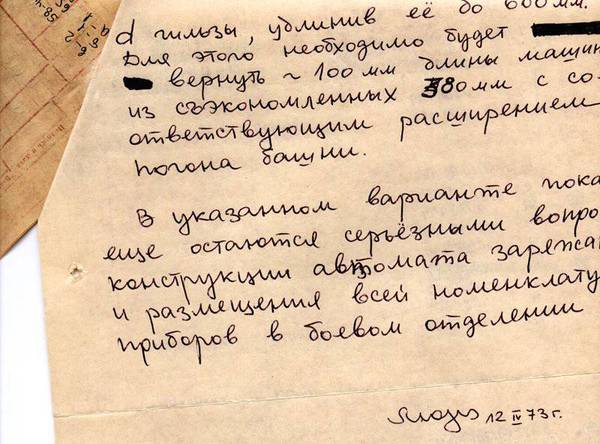 d гильзы, удлинив её до 600 мм.
Для этого необходимо будет
вернуть ~ 100 мм длины машин
из съэкономленных 380 мм с со-
ответствующим расширением
погона башни.
В указанном варианте пока
еще остаются серьёзными вопро
конструкции автомата заряжа
и размещения всей номенклату
приборов в боевом отделении
12 IV 73 г.